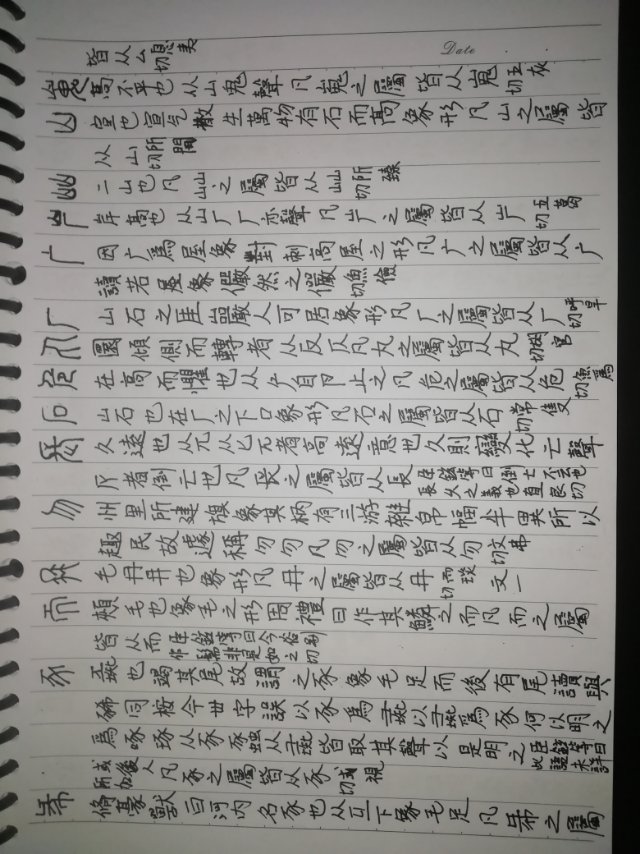 Date
皆从厶息夷切
嵬 高不平也从山鬼聲凡嵬之屬皆从嵬五灰切
山 宣也宣气散生萬物有石而高象形凡山之屬皆
从山所閒切
屾 二山也凡屾之屬皆从屾所臻切
屵 岸高也从山厂厂亦聲凡屵之屬皆从屵五葛切
广 因广爲屋象對刺高屋之形凡广之屬皆从广
讀若儼然之儼魚儉切
厂 山石之厓巖人可居象形凡厂之屬皆从厂呼旱切
丸 圜傾側而轉者从反仄凡丸之屬皆从丸胡官切
危 在高而懼也从厃自卪止之凡危之屬皆从危魚爲切
石 山石也在厂之下口象形凡石之屬皆从石常隻切
長 久遠也从兀从匕兀者高遠意也久則變化亾聲
𠂆者倒亾也凡長之屬皆从長臣鉉等曰倒亾不亾也長久之義也直良切
勿 州里所建旗象其柄有三游雜帛幅半異所以
趣民故遽稱勿勿凡勿之屬皆从勿文弗切
冄 毛冄冄也象形凡冄之屬皆从冄而琰切 文一
而 頰毛也象毛之形周禮曰作其鱗之而凡而之屬
皆从而臣鉉等曰今俗別作髵非是如之切
豕 彘也竭其尾故謂之豕象毛足而後有尾讀與
豨同桉今世字誤以豕爲彘以彘爲豕何以明之
爲啄琢从豕蟸从彘皆取其聲以是明之臣鉉等曰此語未詳
或後人所加凡豕之屬皆从豕式視切
㣇 脩豪獸一曰河內名豕也从彑下象毛足凡㣇之屬